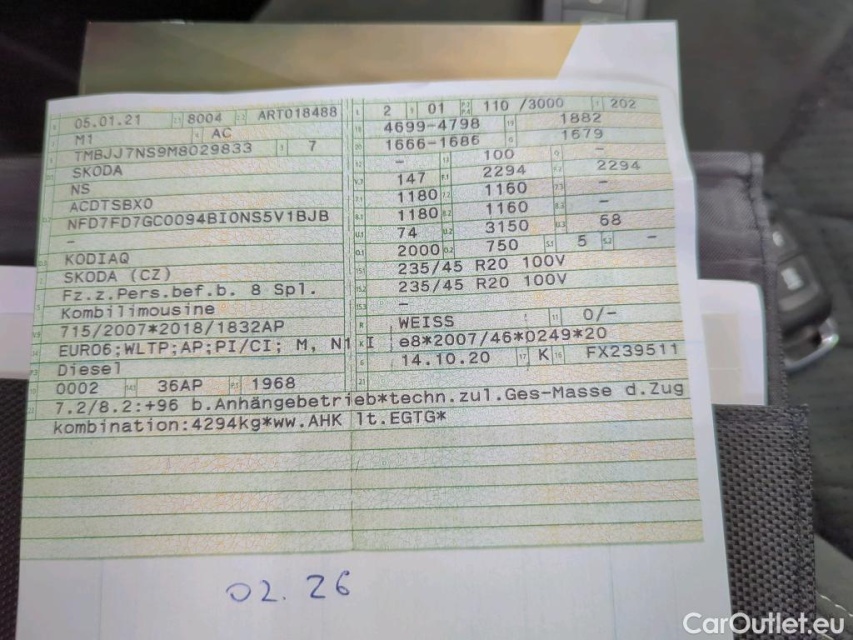 05.01.21 8004 ART018488
M1 AC
TMBJJ7NS9M8029833 7
SKODA
NS
ACDTSBX0
NFD7FD7GC0094BI0NS5V1BJB
-
KODIAQ
SKODA (CZ)
Fz.z.Pers.bef.b. 8 Spl.
Kombilimousine
715/2007*2018/1832AP
EURO6;WLTP;AP;PI/CI; M, N1 I
Diesel
0002 36AP 1968
2 01 110 /3000 202
4699-4798 1882
1666-1686 1679
- 100 -
147 2294 2294
1180 1160 -
1180 1160 -
74 3150 68
2000 750 5 -
235/45 R20 100V
235/45 R20 100V
-
WEISS 0/-
e8*2007/46*0249*20
14.10.20 K FX239511
7.2/8.2:+96 b.Anhängebetrieb*techn.zul.Ges-Masse d.Zug
kombination:4294kg*ww.AHK lt.EGTG*
02. 26
CarOutlet.eu